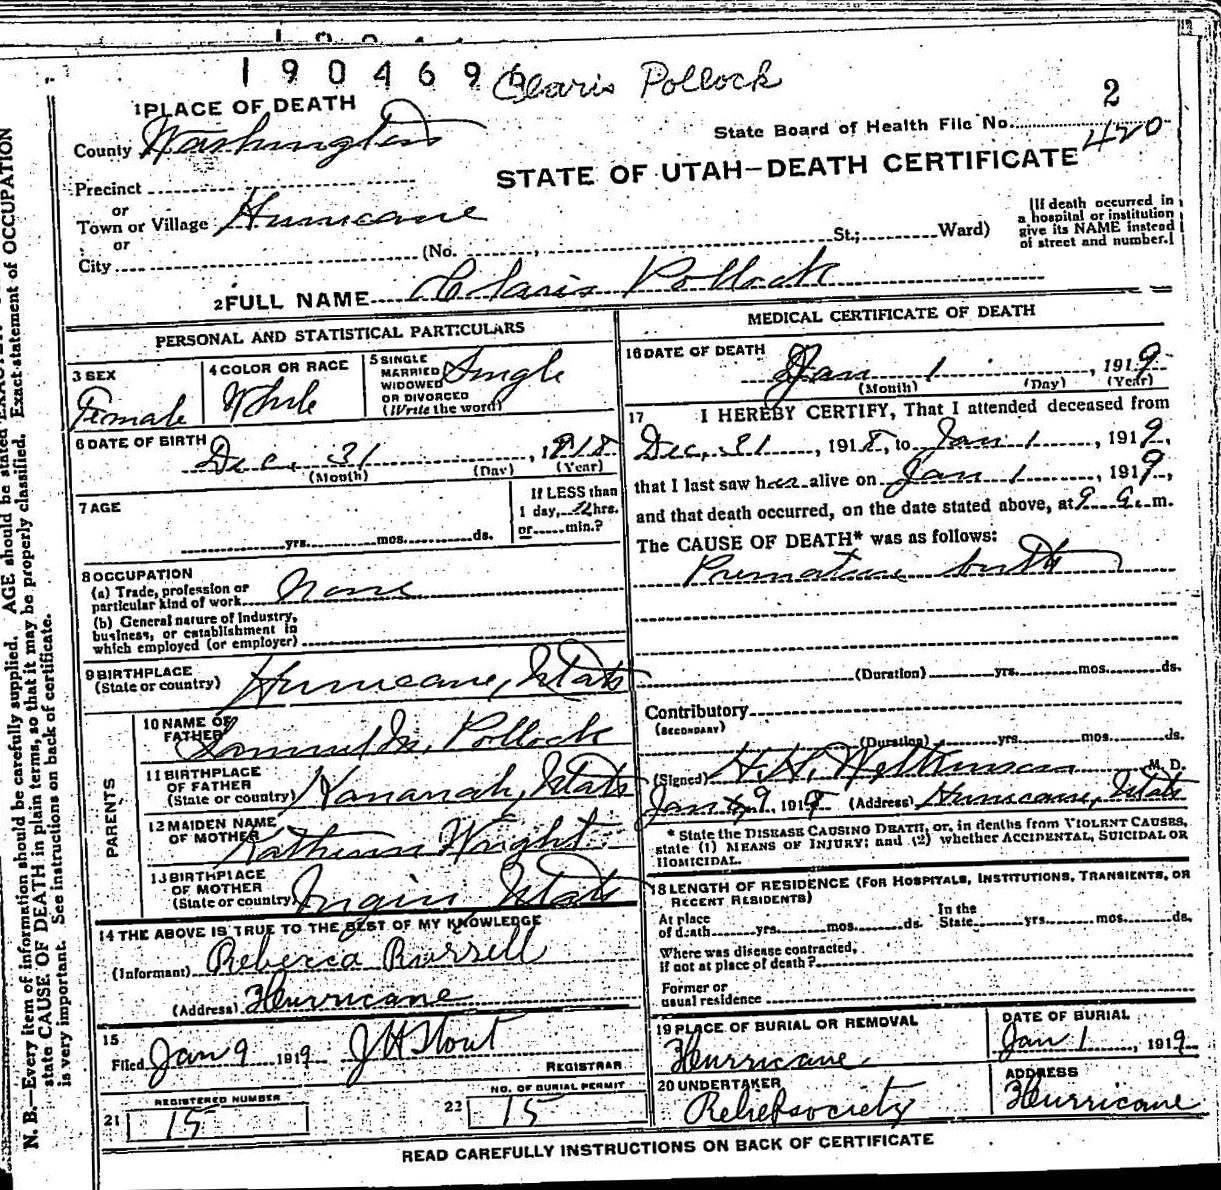 190469
Claris Pollock
2
1 PLACE OF DEATH
County Washington
State Board of Health File No. 420
STATE OF UTAH—DEATH CERTIFICATE
Precinct
or
Town or Village Hurricane
or
City (No. St.; Ward)
[If death occurred in
a hospital or institution
give its NAME instead
of street and number.]
2 FULL NAME Claris Pollock
PERSONAL AND STATISTICAL PARTICULARS
3 SEX
Female
4 COLOR OR RACE
White
5 SINGLE
MARRIED
WIDOWED
OR DIVORCED
(Write the word)
Single
6 DATE OF BIRTH
Dec. 31, 1918
(Month) (Day) (Year)
7 AGE
yrs. mos. ds.
If LESS than
1 day, 12 hrs.
or min.?
8 OCCUPATION
(a) Trade, profession or
particular kind of work None
(b) General nature of Industry,
business, or establishment in
which employed (or employer)
9 BIRTHPLACE
(State or country) Hurricane, Utah
PARENTS
10 NAME OF
FATHER Samuel Pollock
11 BIRTHPLACE
OF FATHER
(State or country) Kanarrah, Utah
12 MAIDEN NAME
OF MOTHER Wright
13 BIRTHPLACE
OF MOTHER
(State or country) Virgin Utah
14 THE ABOVE IS TRUE TO THE BEST OF MY KNOWLEDGE
(Informant) Rebecca Russell
(Address) Hurricane
15
Filed Jan 9 1919 J H Stout
REGISTRAR
REGISTERED NUMBER
21 15
NO. OF BURIAL PERMIT
22 15
MEDICAL CERTIFICATE OF DEATH
16 DATE OF DEATH
Jan 1, 1919
(Month) (Day) (Year)
17 I HEREBY CERTIFY, That I attended deceased from
Dec, 31, 1918, to Jan 1, 1919,
that I last saw her alive on Jan 1, 1919,
and that death occurred, on the date stated above, at 9 a. m.
The CAUSE OF DEATH* was as follows:
Premature birth
(Duration) yrs. mos. ds.
Contributory
(SECONDARY)
(Duration) yrs. mos. ds.
(Signed) Wilkinson M. D.
Jan 9 191 (Address) Hurricane, Utah
* State the DISEASE CAUSING DEATH, or, in deaths from VIOLENT CAUSES,
state (1) MEANS OF INJURY; and (2) whether ACCIDENTAL, SUICIDAL OR
HOMICIDAL.
18 LENGTH OF RESIDENCE (FOR HOSPITALS, INSTITUTIONS, TRANSIENTS, OR
RECENT RESIDENTS)
At place
of death yrs. mos. ds.
In the
State yrs. mos. ds.
Where was disease contracted,
if not at place of death?
Former or
usual residence
19 PLACE OF BURIAL OR REMOVAL
Hurricane
DATE OF BURIAL
Jan 1, 1919
20 UNDERTAKER
Relief society
ADDRESS
Hurricane
READ CAREFULLY INSTRUCTIONS ON BACK OF CERTIFICATE
N. B.—Every item of information should be carefully supplied. AGE should be stated EXACTLY.
state CAUSE OF DEATH in plain terms, so that it may be properly classified. Exact statement of OCCUPATION
is very important. See instructions on back of certificate.